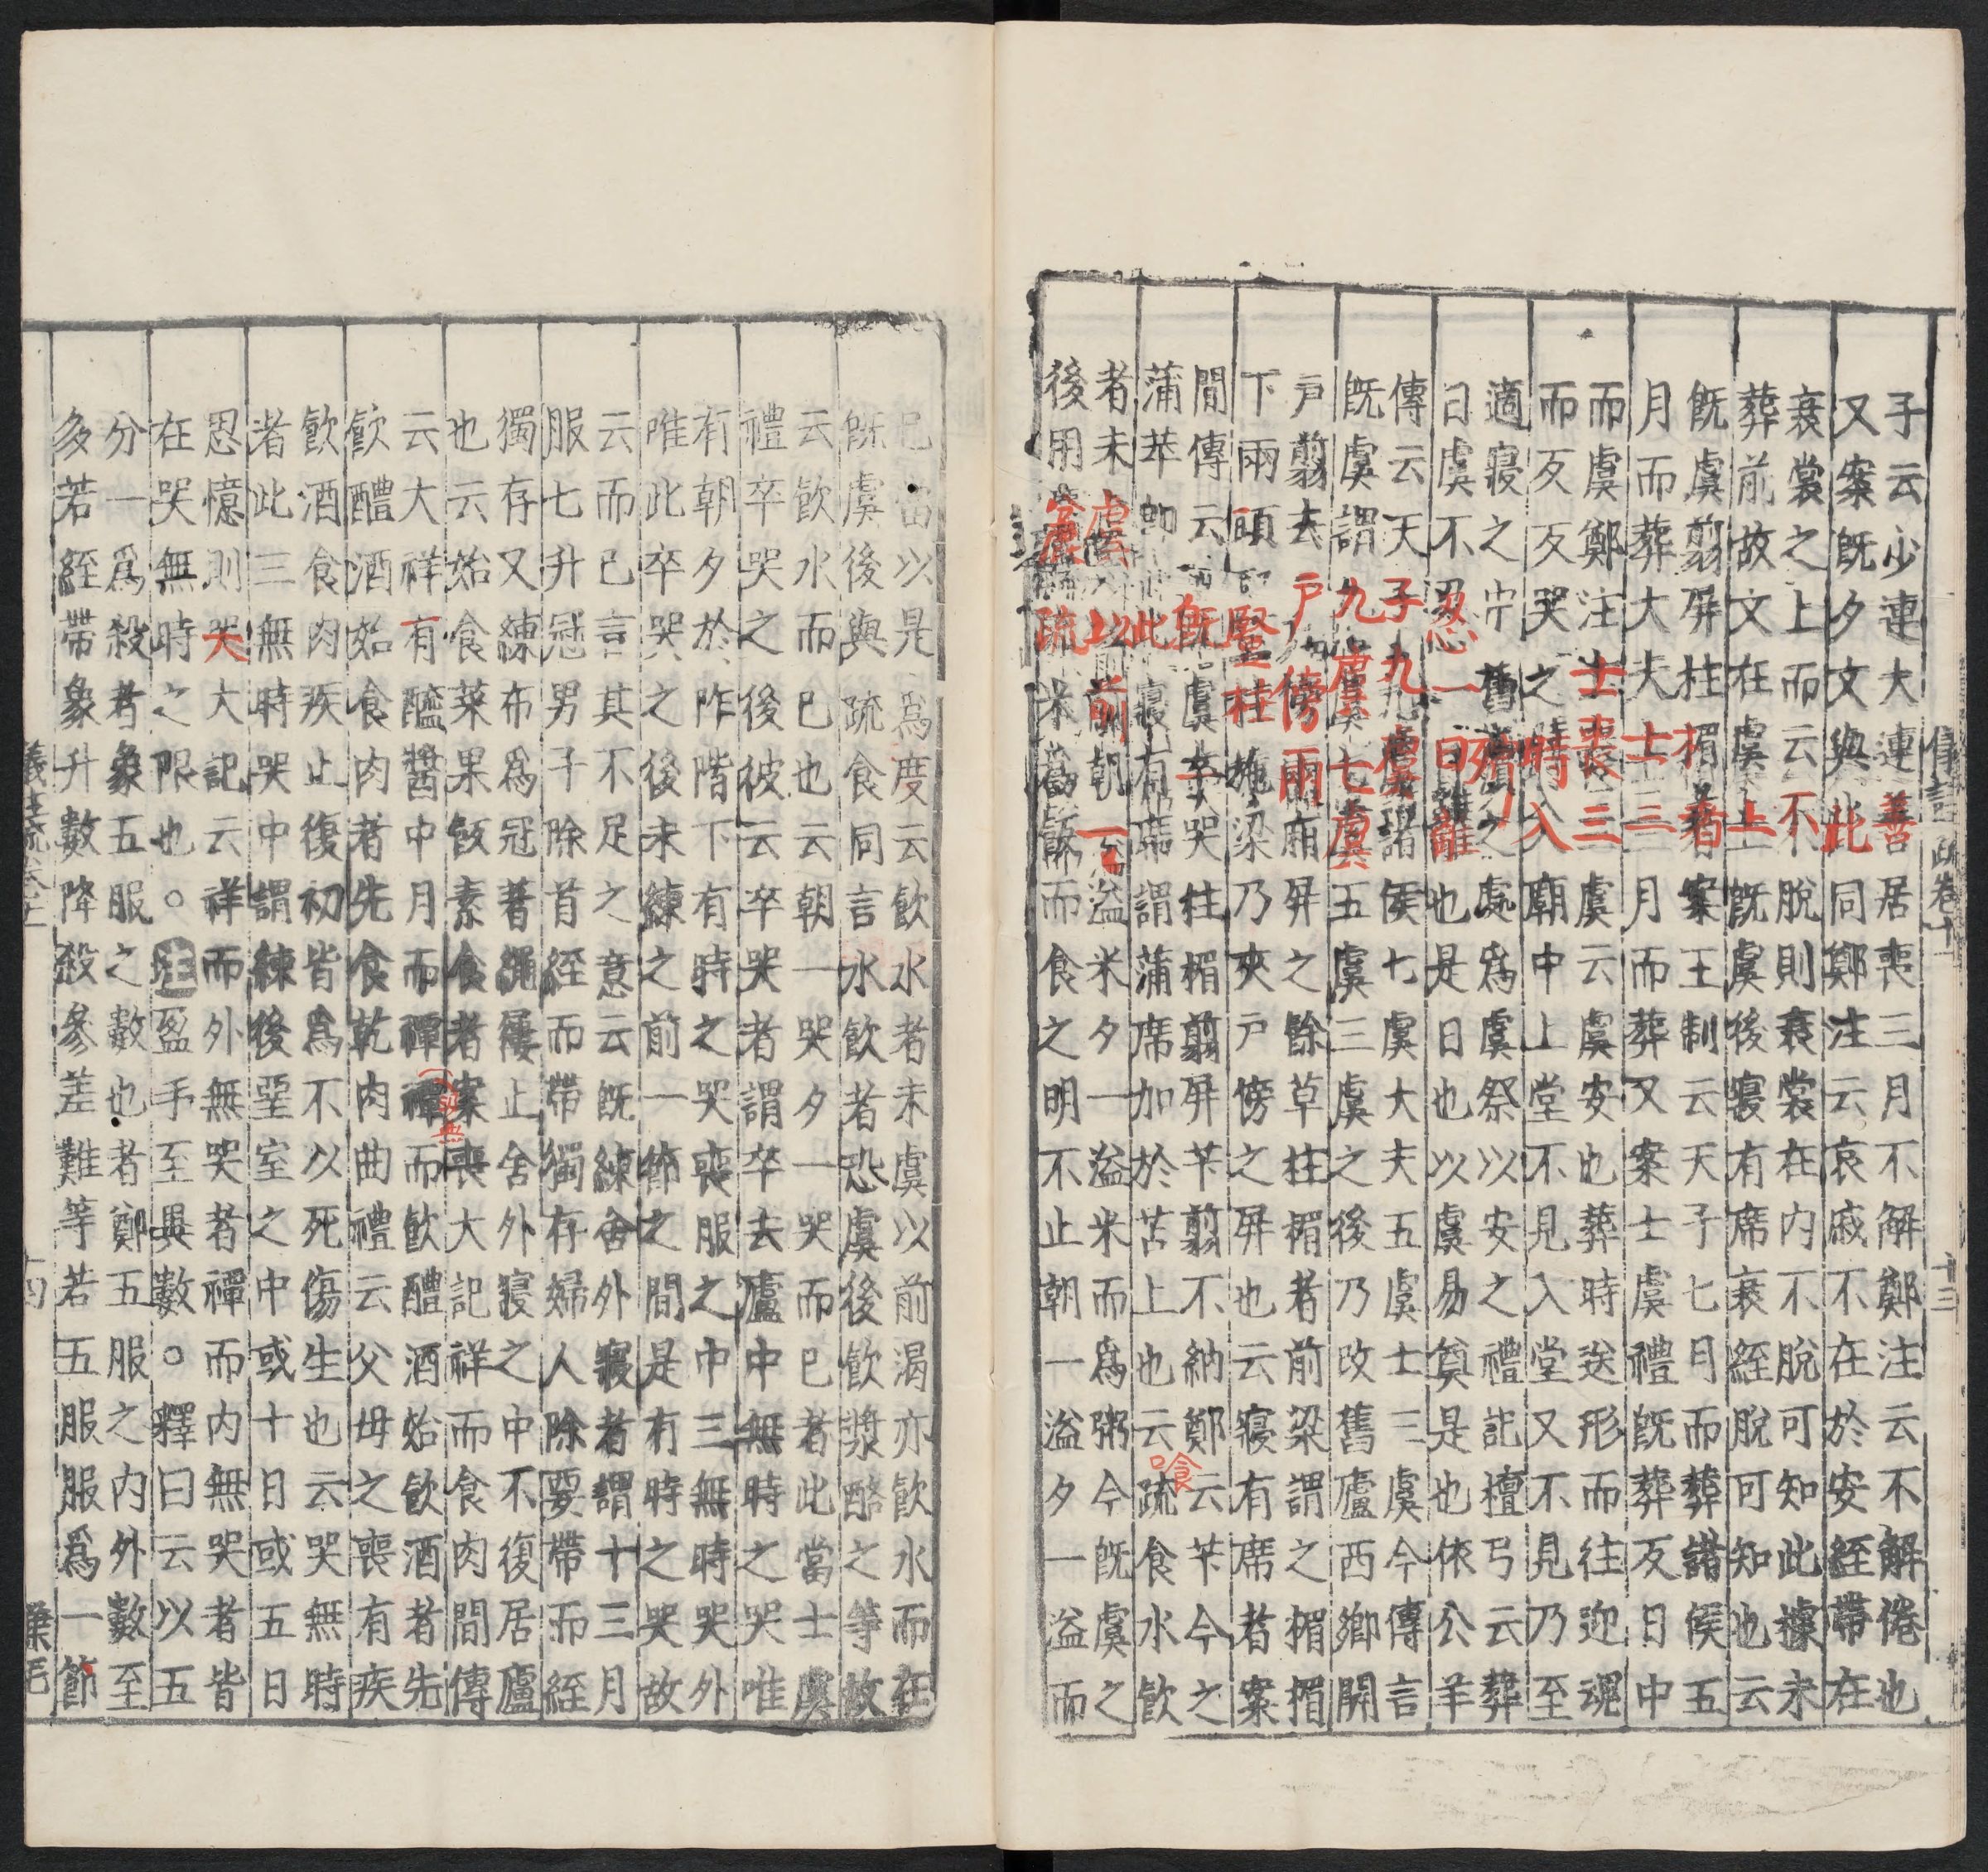 子云少連大連善居喪三月不解鄭注云不解倦也
又案既夕文與此同鄭注云哀戚不在於安絰帶在
衰裳之上而云不脫則衰裳在内不脫可知此據未
葬前故文在虞上既虞後寢有席衰絰脫可知也云
既虞翦屏柱楣者案王制云天子七日而葬諸侯五
月而葬大夫士三月而葬又案士虞禮既葬反日中
而虞鄭注士喪三虞云虞安也葬時送形而往迎魂
而反反哭之時入廟中上堂不見入堂又不見乃至
適寢之中舊殯之處爲虞祭以安之禮記檀弓云葬
日虞不忍一日離也是日也以虞易奠是也依公羊
傳云天子九虞諸侯七虞大夫五虞士三虞今傳言
既虞謂九虞七虞五虞三虞之後乃改舊廬西鄉開
戶翦去戶傍兩廂屏之餘草柱楣者前梁謂之楣楣
下兩頭豎柱施梁乃夾戶傍之屏也云寢有席者案
閒傳云既虞卒哭柱楣翦屏苄翦不納鄭云苄今之
蒲苹卽此寢有席謂蒲席加於苫上也云疏食水飲
喰
者未虞以前朝一溢米夕一溢米而爲粥今既虞之
後用麤疏米爲飯而食之明不止朝一溢夕一溢而
已當以是爲度云飲水者未虞以前渴亦飲水而在
既虞後與疏食同言水飲者恐虞後飲漿酪之等故
云飲水而已也云朝一哭夕一哭而已者此當士虞
禮卒哭之後彼云卒哭者謂卒去廬中無時之哭唯
有朝夕於阼階下有時之哭喪服之中三無時哭外
唯此卒哭之後未練之前一節之間是有時之哭故
云而已言其不足之意云既練舍外寢者謂十三月
服七升冠男子除首絰而帶獨存婦人除要帶而絰
獨存又練布爲冠著繩屨止舍外寢之中不復居廬
也云始食菜果飯素食者案喪大記祥而食肉間傳
云大祥有醯醬中月而禫禫而飲醴酒始飲酒者先
飲醴酒始食肉者先食乾肉曲禮云父母之喪有疾
飲酒食肉疾止復初皆爲不以死傷生也云哭無時
者此三無時哭中謂練後堊室之中或十日或五日
思憶則哭大記云祥而外無哭者禫而内無哭者皆
在哭無時之限也。注盈手至異數。釋曰云以五
分一爲殺者象五服之數也者鄭五服之内外數至
多若絰帶象升數降殺參差難等若五服服爲一節